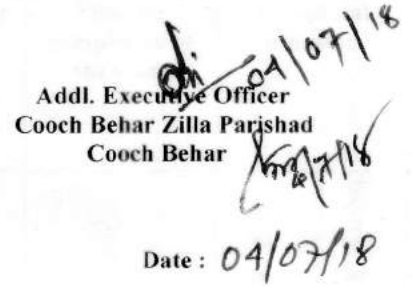 04/07/18
Addl. Executive Officer
Cooch Behar Zilla Parishad
Cooch Behar
Date : 04/07/18